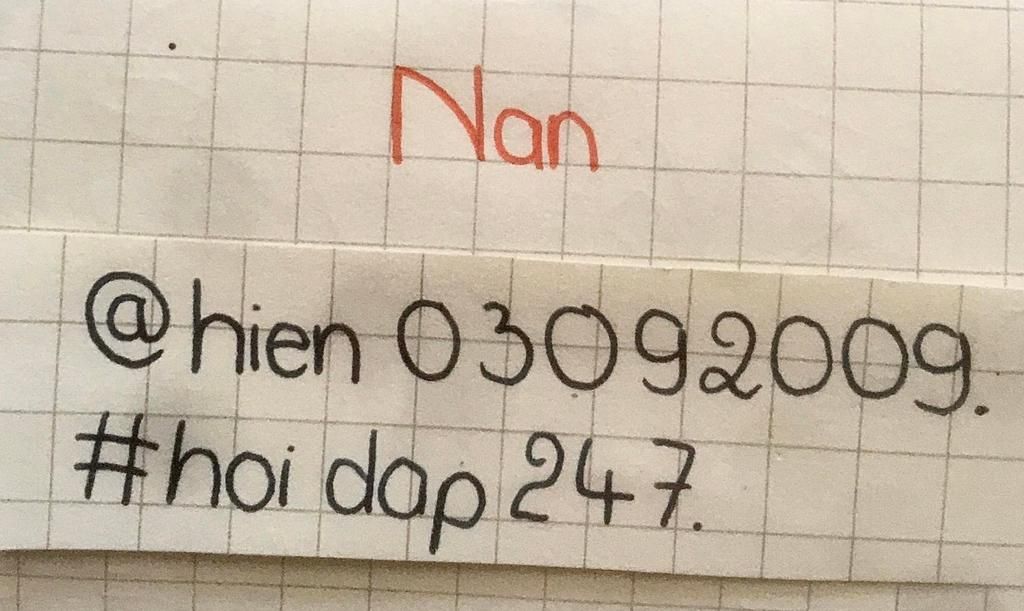 Nan
@hien 03092009.
#hoi dap 247.